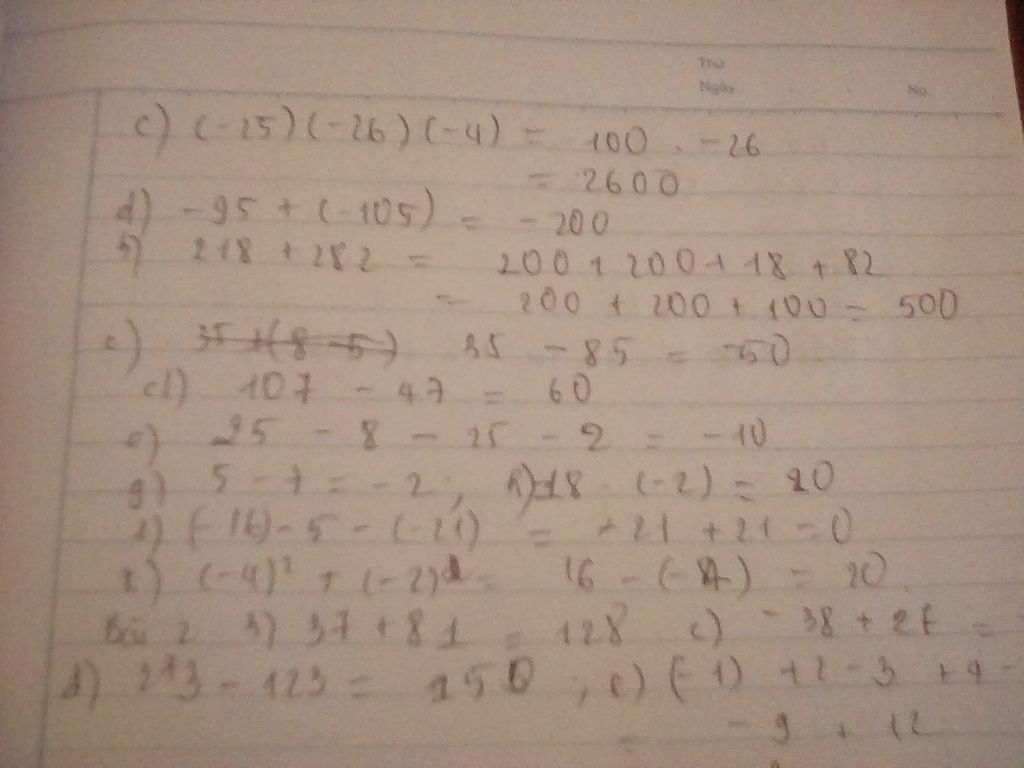 Thứ
Ngày No.
c) (-25)(-26)(-4) = 100 . -26
= 2600
d) -95 + (-105) = -200
b) 218 + 282 = 200 + 200 + 18 + 82
= 200 + 200 + 100 = 500
c) 35 - 85 = -50
d) 107 - 47 = 60
e) 25 - 8 - 25 - 2 = -10
g) 5 - 7 = -2 ; h) 18 - (-2) = 20
i) (-16) - 5 - (-21) = -21 + 21 = 0
k) (-4)² + (-2)² = 16 - (-4) = 20
Bài 2 b) 37 + 81 = 128 c) -38 + 27 =
d) 273 - 123 = 150 ; e) (-1) + 2 - 3 + 4 -
= - 9 + 12